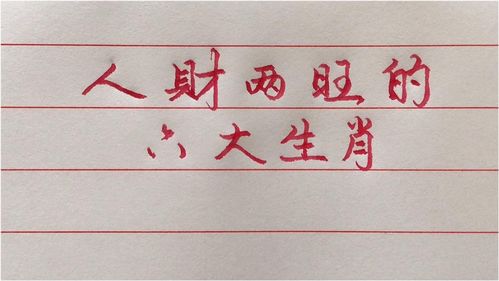 人財两旺的
六大生肖